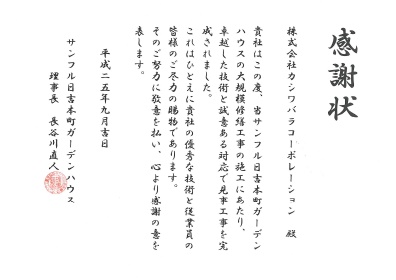 感謝状
株式会社カシワバラコーポレーション 殿
貴社はこの度、当サンフル日吉本町ガーデン
ハウスの大規模修繕工事の施工にあたり、
卓越した技術と誠意ある対応で見事工事を完
成されました。
これはひとえに貴社の優秀な技術と従業員の
皆様のご尽力の賜物であります。
そのご努力に敬意を払い、心より感謝の意を
表します。
平成二五年九月吉日
サンフル日吉本町ガーデンハウス
理事長 長谷川直人